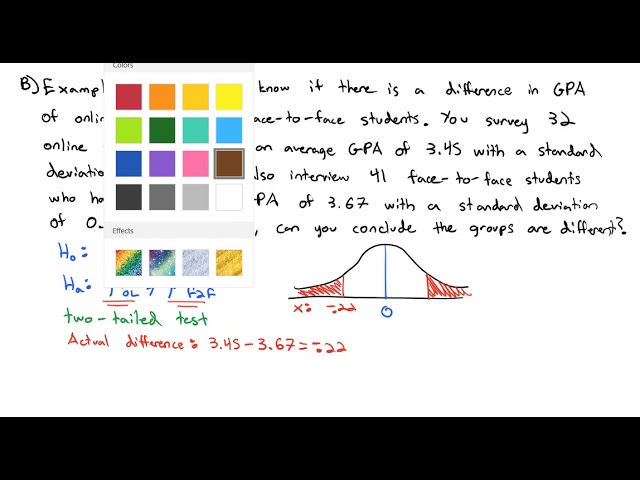 Colors
B) Exampl know if there is a difference in GPA
of onlin ace-to-face students. You survey 32
online an average GPA of 3.45 with a standard
deviatio lso interview 41 face-to-face students
who ha PA of 3.67 with a standard deviation
of 0. , can you conclude the groups are different?
Effects
H₀:
Hₐ: μ OL ≠ μ F2F
two-tailed test
x: -.22 0
Actual difference: 3.45 - 3.67 = -.22